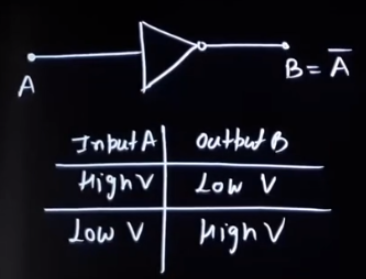 A
B = A̅
Input A Output B
High V Low V
Low V High V